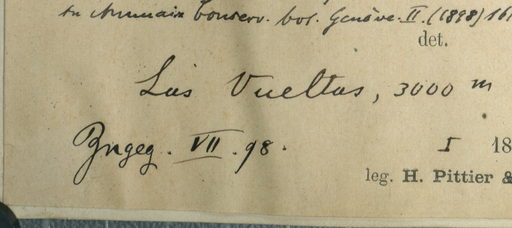 in Annuaire Conserv. bot. Genève. II. (1898) 161
det.
Las Vueltas, 3000 m
VII. 98.
I 18
leg. H. Pittier &